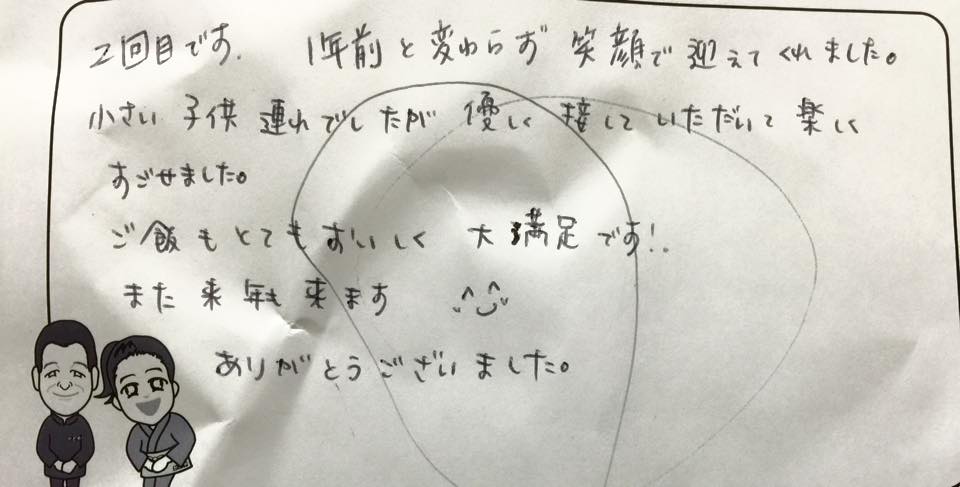 2回目です. 1年前と変わらず 笑顔で迎えてくれました。
小さい子供連れでしたが 優しく接していただいて楽しく
すごせました。
ご飯もとてもおいしく 大満足です!.
また来年も来ます ^^
ありがとうございました。